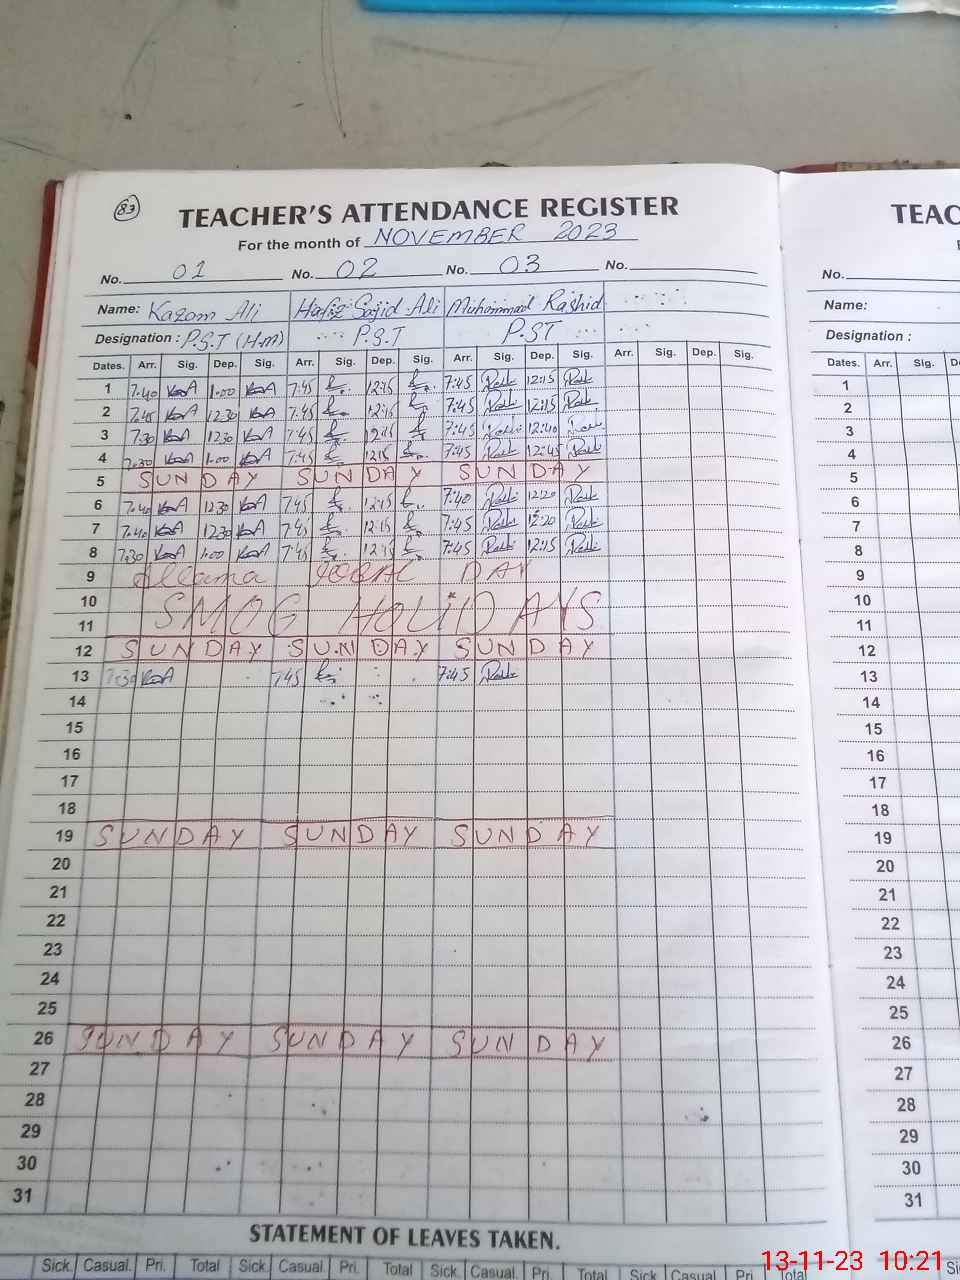 83
TEACHER'S ATTENDANCE REGISTER
For the month of NOVEMBER 2023
No. 01 No. 02 No. 03 No.
Name: Kazam Ali Hafiz Sajid Ali Muhammad Rashid
Designation : P.S.T (H.M) P.S.T PST
Dates. Arr. Sig. Dep. Sig. Arr. Sig. Dep. Sig. Arr. Sig. Dep. Sig. Arr. Sig. Dep. Sig.
1 7.40 1.00 7:45 12:15 7:45 12:15
2 7.45 12.30 7:45 12:15 7:45 12:15
3 7.30 12.30 7:45 12:15 7:45 12:40
4 7.30 1.00 7:45 12:15 7:45 12:45
5 SUNDAY SUNDAY SUNDAY
6 7.40 12.30 7:45 12:15 7:40 12:20
7 7.40 12.30 7:45 12:15 7:45 12:20
8 7.30 1.00 7:45 12:15 7:45 12:15
9 Allama IQBAL DAY
10 SMOG HOLIDAYS
11
12 SUNDAY SUNDAY SUNDAY
13 7.30 7:45 7:45
14
15
16
17
18
19 SUNDAY SUNDAY SUNDAY
20
21
22
23
24
25
26 SUNDAY SUNDAY SUNDAY
27
28
29
30
31
STATEMENT OF LEAVES TAKEN.
Sick. Casual. Pri. Total Sick. Casual. Pri. Total Sick. Casual. Pri. Total Sick. Casual. Pri. Total
TEAC
No.
Name:
Designation :
Dates. Arr. Sig.
1
2
3
4
5
6
7
8
9
10
11
12
13
14
15
16
17
18
19
20
21
22
23
24
25
26
27
28
29
30
31
13-11-23 10:21